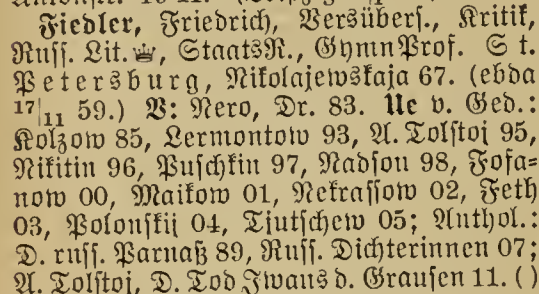 Fiedler, Friedrich, Versübers., Kritik,
Russ. Lit. ♕, StaatsR., GymnProf. St.
Petersburg, Nikolajewskaja 67. (ebda
17|11 59.) V: Nero, Dr. 83. Ue v. Ged.:
Kolzow 85, Lermontow 93, A. Tolstoi 95,
Nikitin 96, Puschkin 97, Nadson 98, Fofa=
now 00, Maikow 01, Nekrassow 02, Feth
03, Polonskii 04, Tiutschew 05; Anthol.:
D. russ. Parnaß 89, Russ. Dichterinnen 07;
A. Tolstoi, D. Tod Iwans d. Grausen 11. ( )